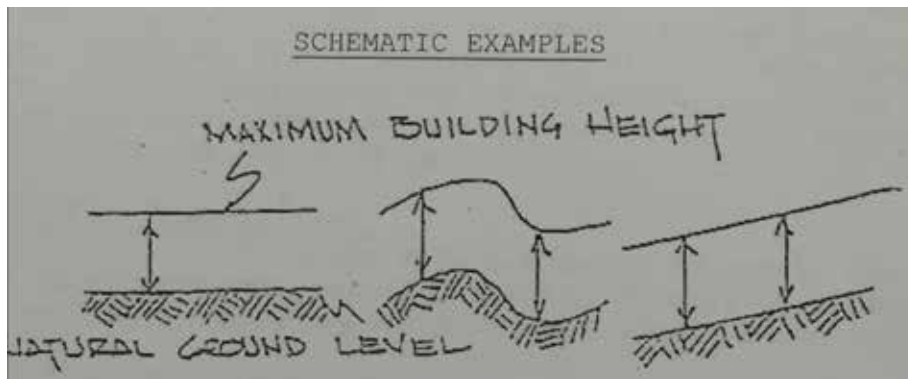 SCHEMATIC EXAMPLES
MAXIMUM BUILDING HEIGHT
NATURAL GROUND LEVEL